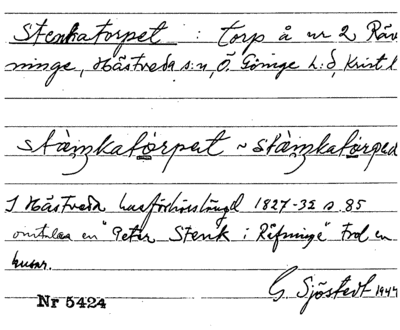 Stenkatorpet : torp å nr 2 Räv
ninge, Hästveda s:n, Ö. Göinge h:d, Krist l
stàŋkatórpət ~ stàŋkatórpəd
I Hästveda husförhörslängd 1827-32 s 85
omtalas en "Peter Stenk i Räfninge" Trol en
husar.
G. Sjöstedt 1944
Nr 5424